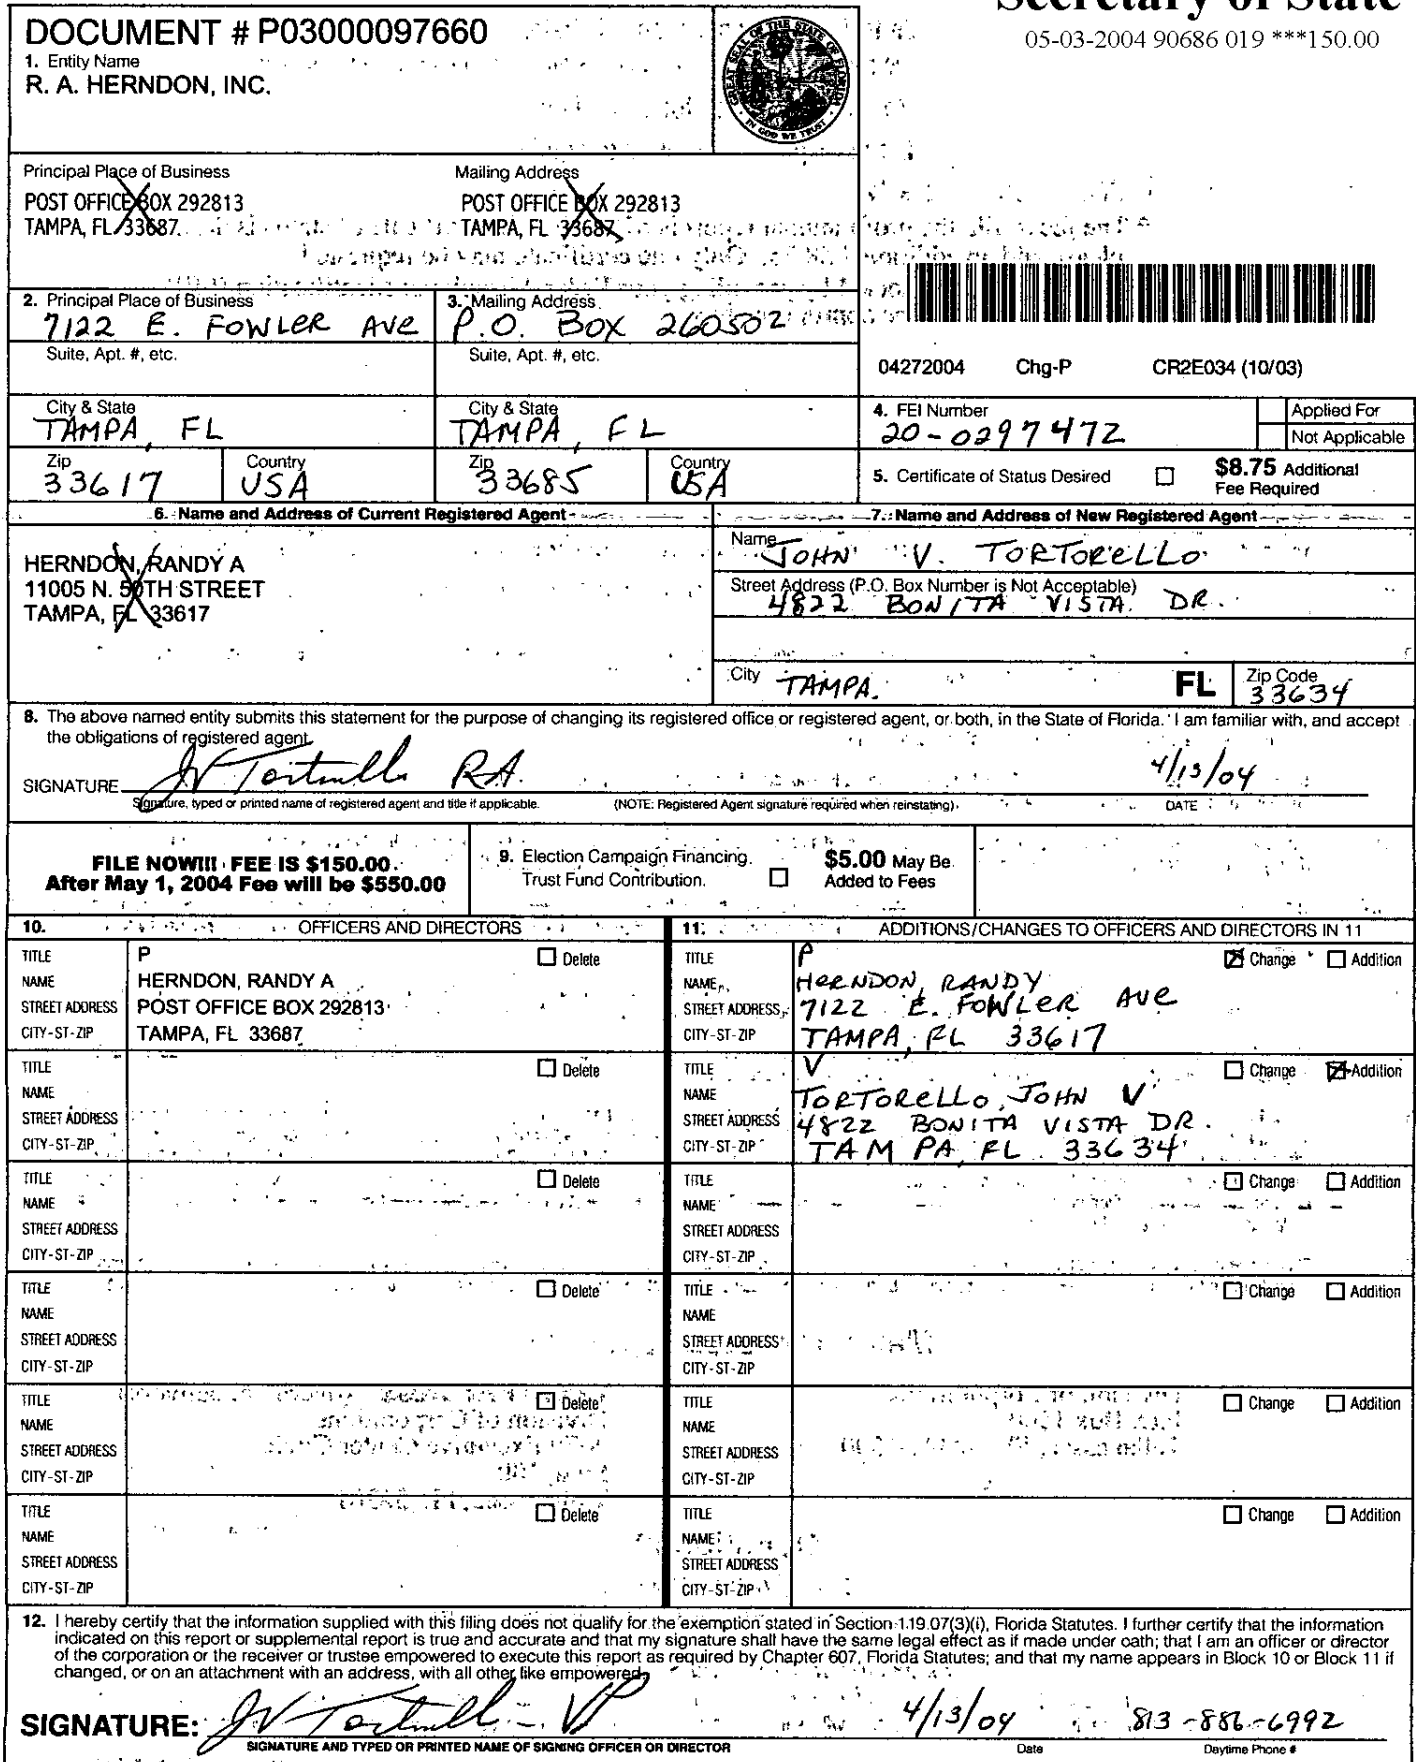 Secretary of State
05-03-2004 90686 019 ***150.00
DOCUMENT # P03000097660
1. Entity Name
R. A. HERNDON, INC.
GREAT SEAL OF THE STATE OF FLORIDA
IN GOD WE TRUST
Principal Place of Business
POST OFFICE BOX 292813
TAMPA, FL 33687
Mailing Address
POST OFFICE BOX 292813
TAMPA, FL 33687
2. Principal Place of Business
7122 E. FOWLER AVE
3. Mailing Address
P.O. BOX 260502
Suite, Apt. #, etc.
Suite, Apt. #, etc.
04272004 Chg-P CR2E034 (10/03)
City & State
TAMPA, FL
City & State
TAMPA, FL
4. FEI Number
20-0297472
Applied For
Not Applicable
Zip
33617
Country
USA
Zip
33685
Country
USA
5. Certificate of Status Desired
$8.75 Additional
Fee Required
6. Name and Address of Current Registered Agent
HERNDON, RANDY A
11005 N. 50TH STREET
TAMPA, FL 33617
7. Name and Address of New Registered Agent
Name
JOHN V. TORTORELLO
Street Address (P.O. Box Number is Not Acceptable)
4822 BONITA VISTA DR.
City TAMPA. FL Zip Code
33634
8. The above named entity submits this statement for the purpose of changing its registered office or registered agent, or both, in the State of Florida. I am familiar with, and accept
the obligations of registered agent.
SIGNATURE JV Tortorello R.A. 4/13/04
Signature, typed or printed name of registered agent and title if applicable. (NOTE: Registered Agent signature required when reinstating) DATE
FILE NOW!!! FEE IS $150.00
After May 1, 2004 Fee will be $550.00
9. Election Campaign Financing
Trust Fund Contribution.
$5.00 May Be
Added to Fees
10. OFFICERS AND DIRECTORS
TITLE P Delete
NAME HERNDON, RANDY A
STREET ADDRESS POST OFFICE BOX 292813
CITY-ST-ZIP TAMPA, FL 33687
TITLE Delete
NAME
STREET ADDRESS
CITY-ST-ZIP
TITLE Delete
NAME
STREET ADDRESS
CITY-ST-ZIP
TITLE Delete
NAME
STREET ADDRESS
CITY-ST-ZIP
TITLE Delete
NAME
STREET ADDRESS
CITY-ST-ZIP
TITLE Delete
NAME
STREET ADDRESS
CITY-ST-ZIP
11. ADDITIONS/CHANGES TO OFFICERS AND DIRECTORS IN 11
TITLE P Change Addition
NAME HERNDON, RANDY
STREET ADDRESS 7122 E. FOWLER AVE
CITY-ST-ZIP TAMPA, FL 33617
TITLE V Change Addition
NAME TORTORELLO, JOHN V
STREET ADDRESS 4822 BONITA VISTA DR.
CITY-ST-ZIP TAMPA, FL 33634
TITLE Change Addition
NAME
STREET ADDRESS
CITY-ST-ZIP
TITLE Change Addition
NAME
STREET ADDRESS
CITY-ST-ZIP
TITLE Change Addition
NAME
STREET ADDRESS
CITY-ST-ZIP
TITLE Change Addition
NAME
STREET ADDRESS
CITY-ST-ZIP
12. I hereby certify that the information supplied with this filing does not qualify for the exemption stated in Section 119.07(3)(i), Florida Statutes. I further certify that the information
indicated on this report or supplemental report is true and accurate and that my signature shall have the same legal effect as if made under oath; that I am an officer or director
of the corporation or the receiver or trustee empowered to execute this report as required by Chapter 607, Florida Statutes; and that my name appears in Block 10 or Block 11 if
changed, or on an attachment with an address, with all other like empowered.
SIGNATURE: JV Tortorello - VP 4/13/04 813-886-6992
SIGNATURE AND TYPED OR PRINTED NAME OF SIGNING OFFICER OR DIRECTOR Date Daytime Phone #